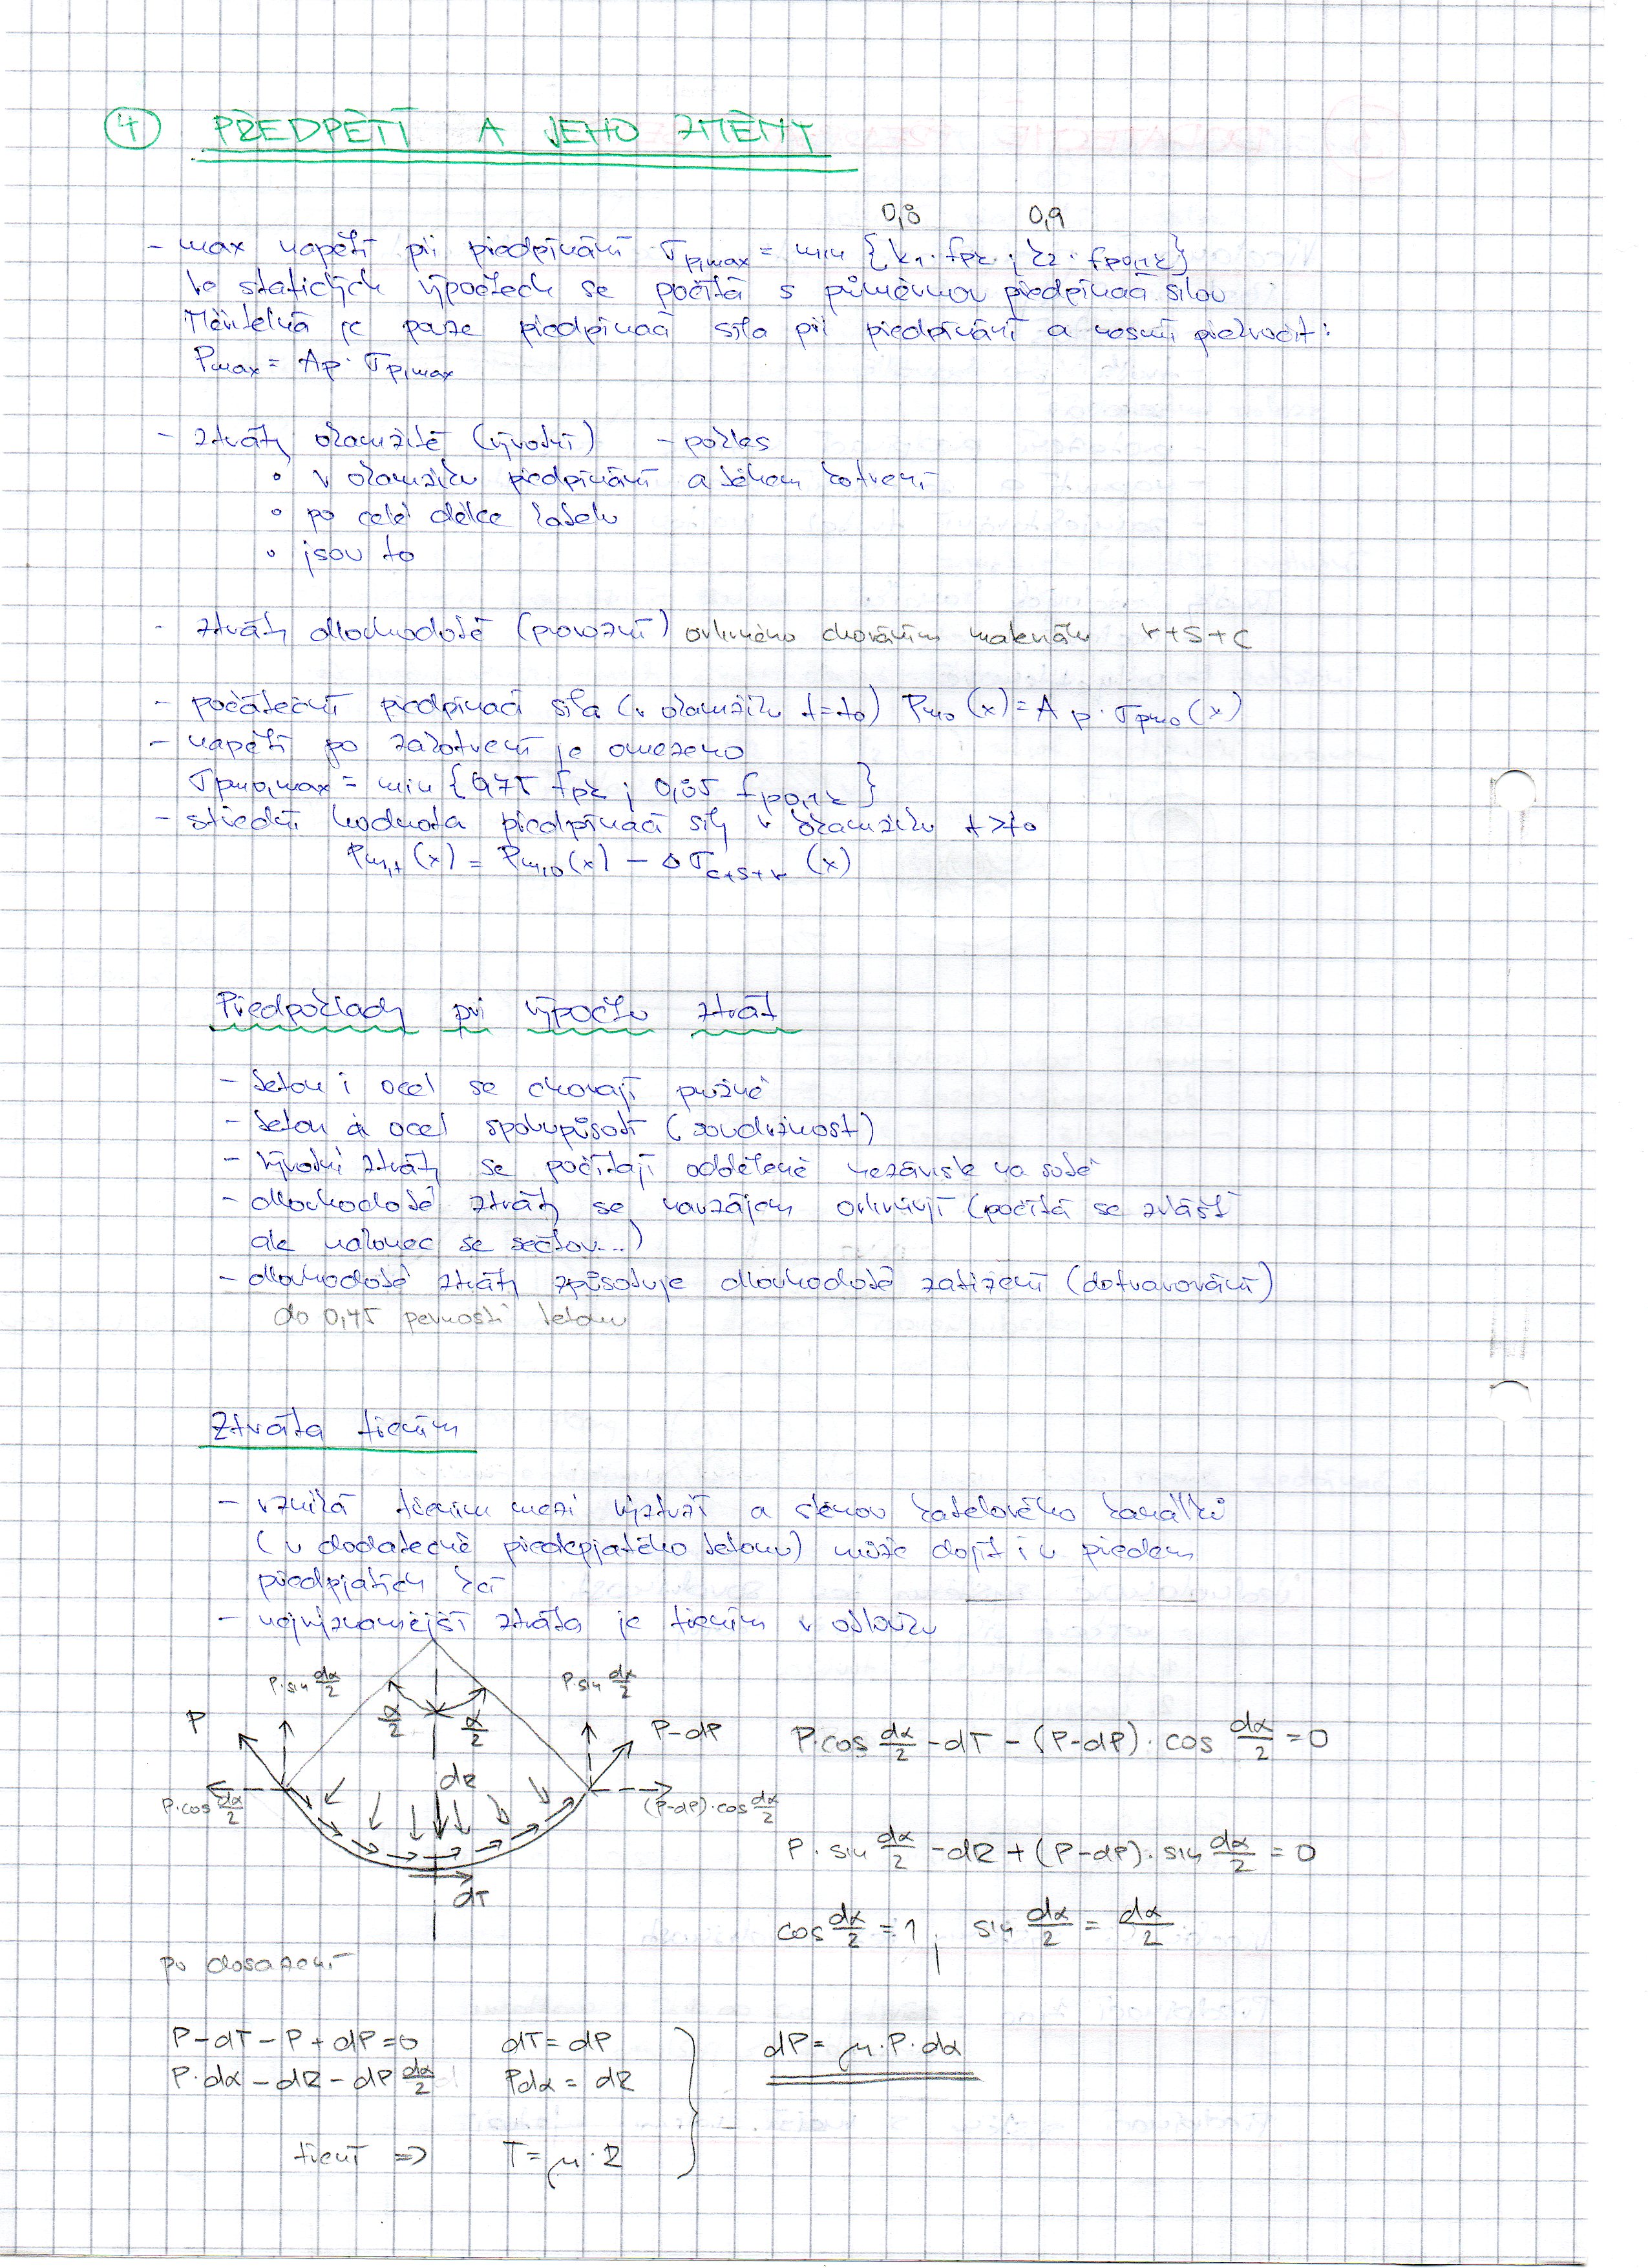 4 PŘEDPĚTÍ A JEHO ZMĚNY
0,8 0,9
- max napětí při předpínání σp,max = min {k1 · fpk ; k2 · fp0,1k}
Ve statických výpočtech se počítá s průměrnou předpínací silou
Měřitelná je pouze předpínací síla při předpínání a nesmí překročit:
Pmax = Ap · σp,max
- ztráty okamžité (výrobní) - pokles
• v okamžiku předpínání a během kotvení
• po celé délce kabelu
• jsou to
- ztráty dlouhodobé (provozní) ovlivněno chováním materiálu r+s+c
- počáteční předpínací síla (v okamžiku t=t0) Pm0 (x) = Ap · σpm0 (x)
- napětí po zakotvení je omezeno
σpm0,max = min {0,75 fpk ; 0,85 fp0,1k}
- střední hodnota předpínací síly v okamžiku t>t0
Pm,t (x) = Pm,0 (x) - Δσc+s+r (x)
Předpoklady při výpočtu ztrát
- beton i ocel se chovají pružně
- beton a ocel spolupůsobí (soudržnost)
- výrobní ztráty se počítají odděleně nezávisle na sobě
- dlouhodobé ztráty se navzájem ovlivňují (počítá se zvlášť
ale nakonec se sečtou...)
- dlouhodobé ztráty způsobuje dlouhodobé zatížení (dotvarování)
do 0,45 pevnosti betonu
Ztráta třením
- vzniká třením mezi výztuží a stěnou kabelového kanálku
(v dodatečně předepjatého betonu) může dojít i v předem
předpjatých kcí
- nejvýznamnější ztráta je třením v oblouku
P·sin dα/2 P·sin dα/2
P α/2 α/2 P-dP
P·cos dα/2 - dT - (P-dP) · cos dα/2 = 0
dR
P·cos dα/2 (P-dP)·cos dα/2
P · sin dα/2 - dR + (P-dP) · sin dα/2 = 0
dT
cos dα/2 = 1 ; sin dα/2 = dα/2
po dosazení
P-dT-P+dP=0 dT=dP dP= μ·P·dα
P·dα-dR-dP dα/2 Pdα = dR
tření => T= μ·R